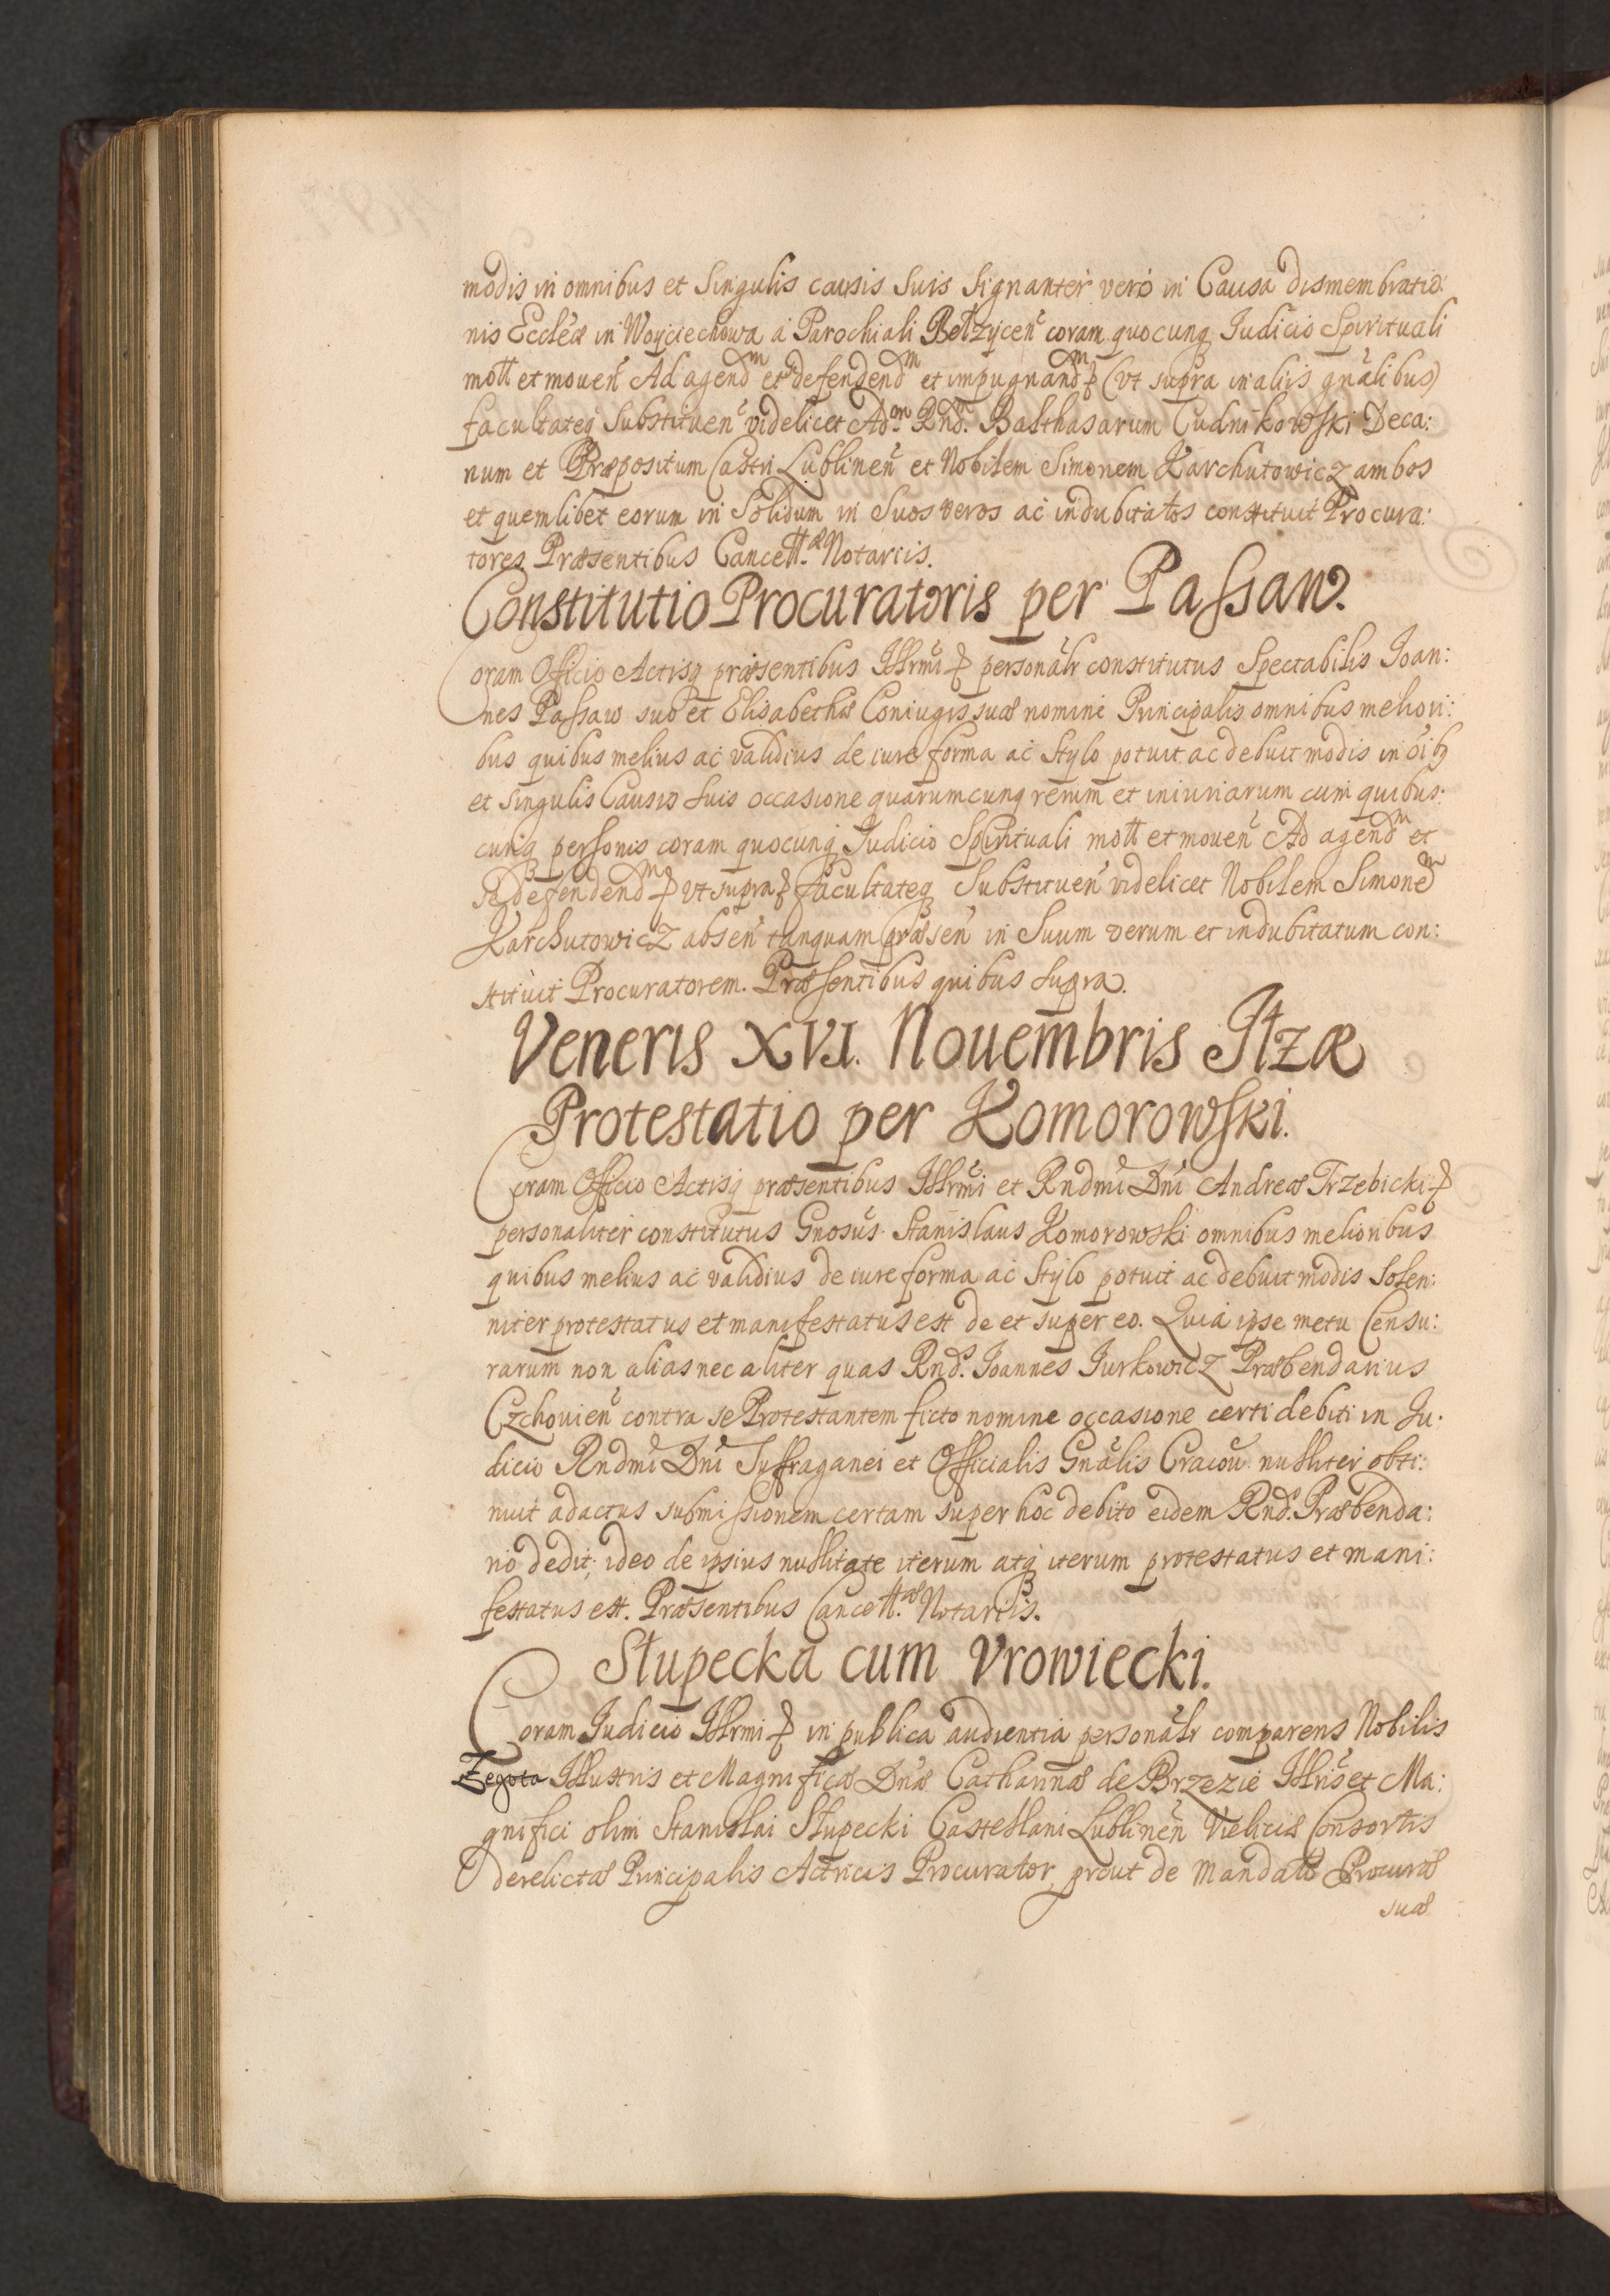 modis in omnibus et Singulis causis Suis Signanter verò in Causa dismembratio:
nis Eccleæ in Woyciechowa à Parochiali Bełzycen coram quocunq Judicio Spirituali
mott et mouen Ad agendm et defendendm et impugnandm (vt supra in aliis gnalibus)
facultateq Substituen videlicet Adm Rnd. Balthasarum Cudnikowski Deca:
num et Præpositum Castri Lublinen et Nobilem Simonem Karchutowicz ambos
et quemlibet eorum in Solidum in Suos veros ac indubitatos constituit Procura:
tores Præsentibus Cancell. Notariis.
Constitutio Procuratoris per Passaw.
Coram Officio Actisq præsentibus Illrmi personalr constitutus Spectabilis Joan:
nes Passaw suo et Elisabethæ Coniugis suæ nomine Principalis omnibus meliori:
bus quibus melius ac validius de iure forma ac Stylo potuit ac debuit modis in oib
et Singulis Causis Suis occasione quarumcunq rerum et iniuriarum cum quibus:
cunq personis coram quocunq Judicio Spirituali mott et mouen Ad agendm et
se defendendm vt supra facultateq Substituen videlicet Nobilem Simonem
Karchutowicz absen tanquam præsen in Suum verum et indubitatum con:
stituit Procuratorem. Præsentibus quibus supra.
Veneris XVI. Nouembris Itzæ
Protestatio per Komorowski.
Coram Officio Actisq præsentibus Illrmi et Rndmi Dni Andreæ Trzebicki
personaliter constitutus Gnosus Stanislaus Komorowski omnibus melioribus
quibus melius ac validius de iure forma ac Stylo potuit ac debuit modis Solen:
niter protestatus et manifestatus est de et super eo. Quia ipse metu Censu:
rarum non alias nec aliter quas Rnd. Joannes Jurkowicz Præbendarius
Czchouien contra se Protestantem ficto nomine occasione certi debiti in Ju:
dicio Rndmi Dni Suffraganei et Officialis Gnalis Cracou. nulliter obti:
nuit adactus submissionem certam super hoc debito eidem Rnd. Præbenda:
rio dedit, ideo de ipsius nullitate iterum atq iterum protestatus et mani:
festatus est. Præsentibus Cancell. Notariis.
Słupecka cum Vrowiecki.
Coram Judicio Illrmi in publica audientia personalr comparens Nobilis
Zegota Illustris et Magnificæ Dnæ Catharinæ de Brzezie Illris et Ma:
gnifici olim Stanislai Słupecki Castellani Lublinen Vielicis Consortis
derelictæ Principalis Actricis Procurator, prout de Mandato Procuræ
suæ